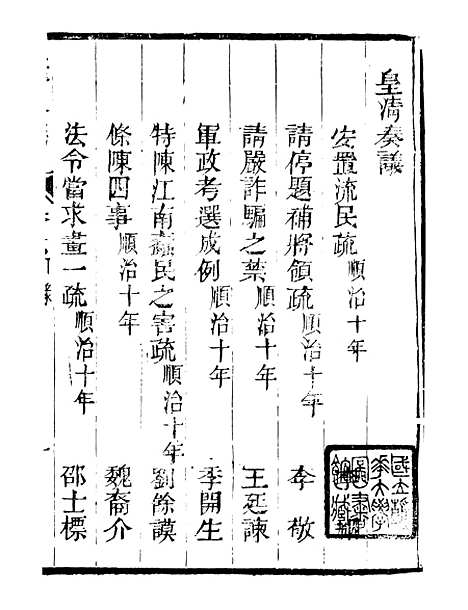 皇清奏議
安置流民疏 順治十年
請停題補將領疏 順治十年 李敬
請嚴詐騙之禁 順治十年 王延諫
軍政考選成例 順治十年 季開生
特陳江南蠹民之害疏 順治十年 劉餘謨
條陳四事 順治十年 魏裔介
法令當求畫一疏 順治十年 邵士標